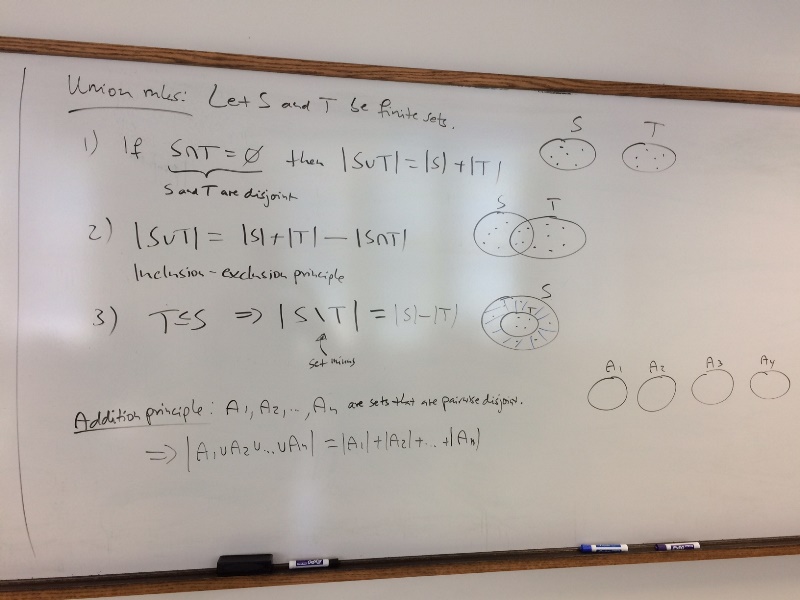 Union rules: Let S and T be finite sets.
1) If S∩T = ∅ then |S∪T| = |S|+|T|
S and T are disjoint
S T
2) |S∪T| = |S|+|T| − |S∩T|
Inclusion-exclusion principle
S T
3) T⊆S ⇒ |S\T| = |S|−|T|
set minus
S
T
A1 A2 A3 A4
Addition principle: A1, A2, ..., An are sets that are pairwise disjoint.
⇒ |A1∪A2∪...∪An| = |A1|+|A2|+...+|An|